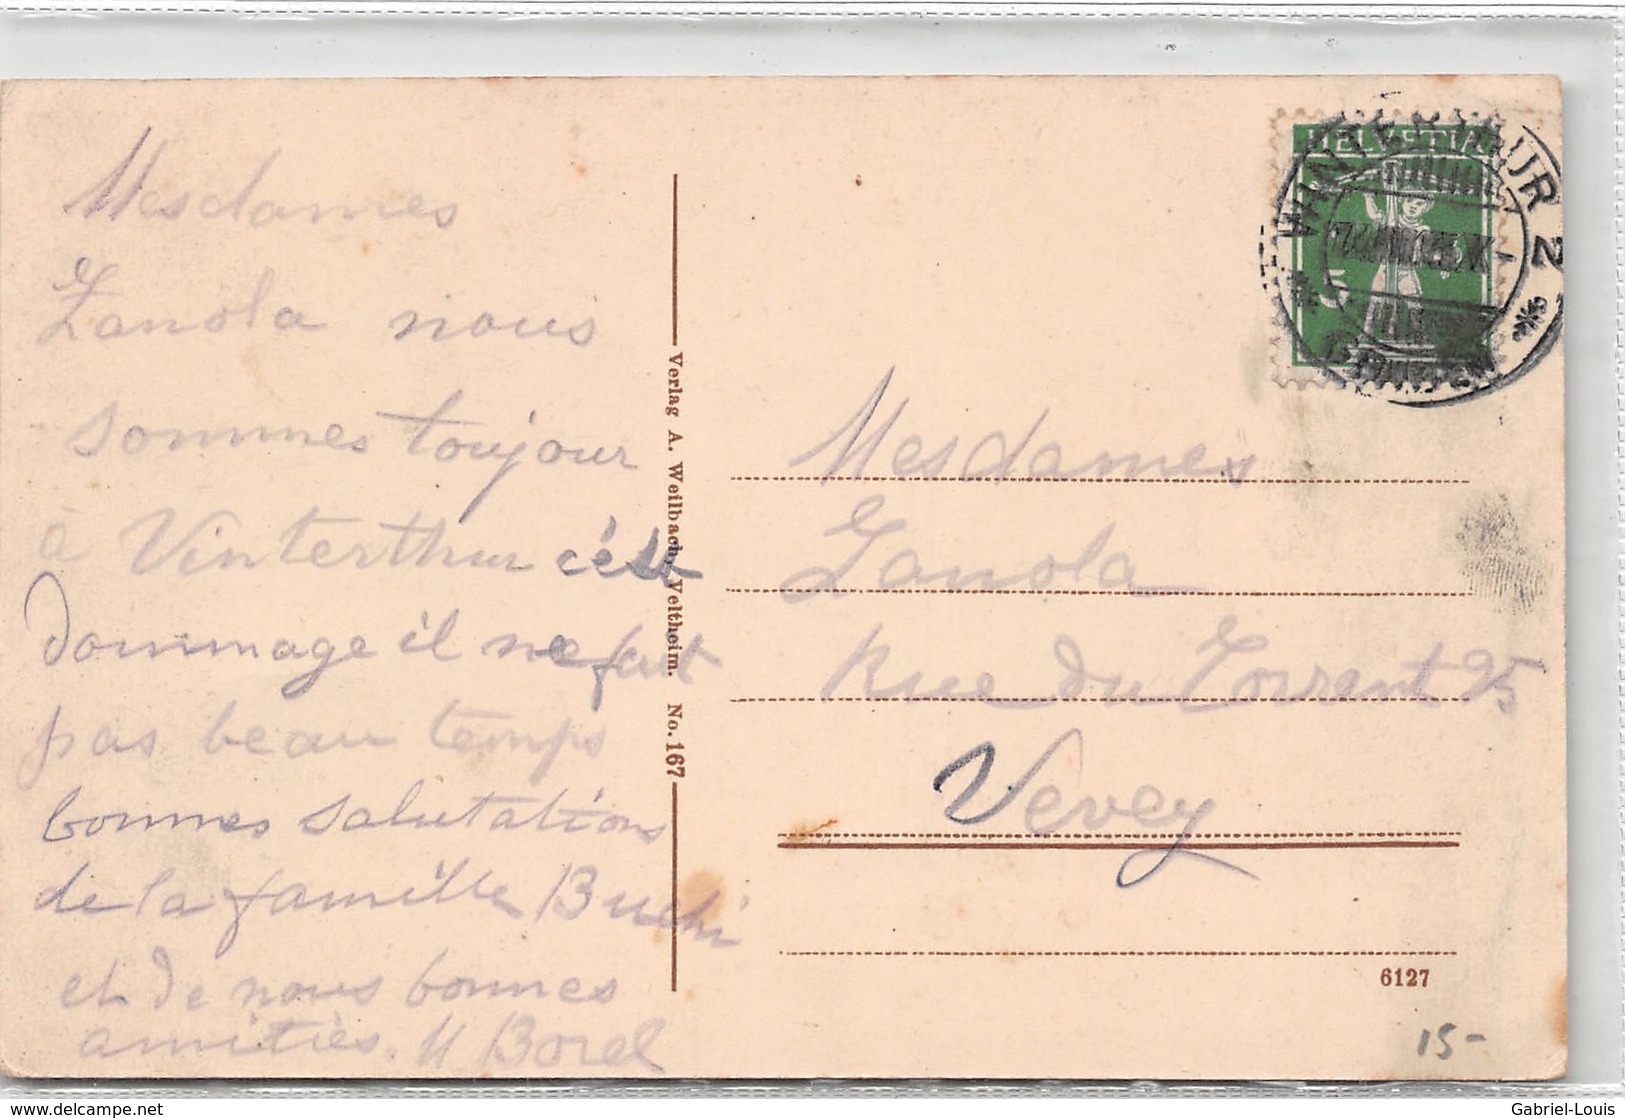 Mesdames
Zanola nous
sommes toujour
à Vinterthur c'est
dommage il ne fait
pas beau temps
bonnes salutations
de la famille Buchi
et de nous bonnes
amitiès. M Borel
Verlag A. Weilbach, Veltheim. No. 167
HELVETIA
5
WINTERTHUR 2
Mesdames
Zanola
Rue du Torrent 25
Vevey
6127
15-
www.delcampe.net
Gabriel-Louis